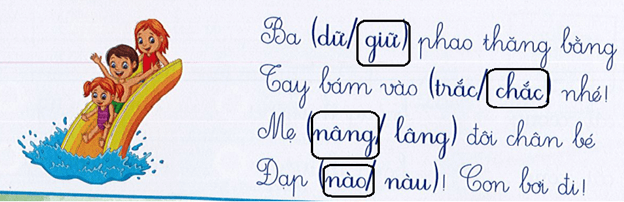 Ba (dữ/ giữ) phao thăng bằng
Tay bám vào (trắc/ chắc) nhé!
Mẹ (nâng/ lâng) đôi chân bé
Đạp (nào/ nàu)! Con bơi đi!